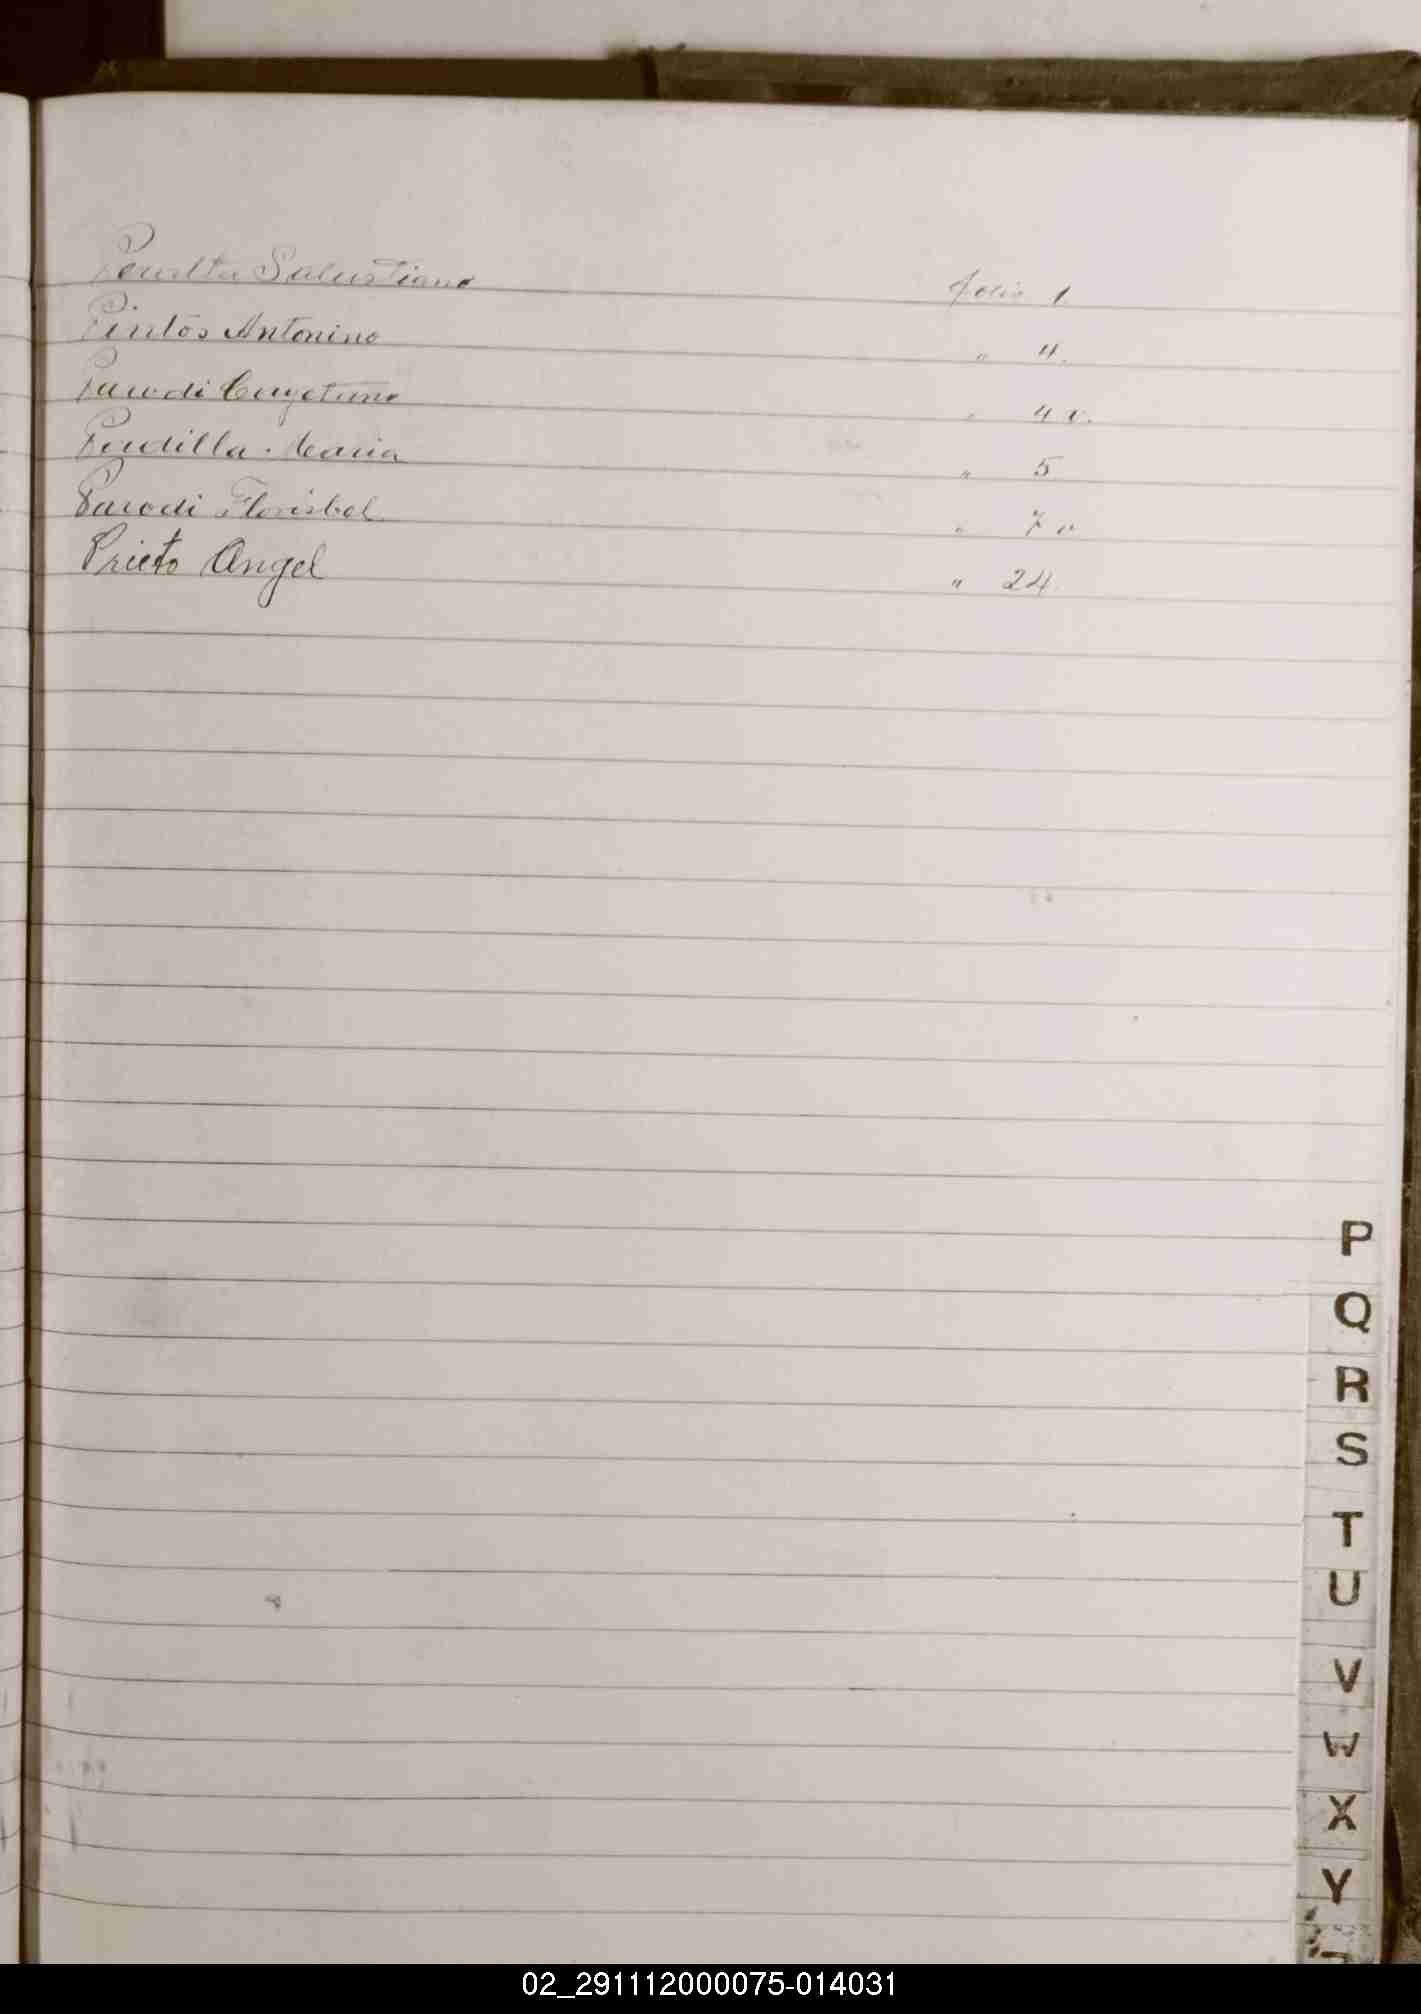 Peralta Salustiano folio 1
Pintos Antonino " 4.
Parodi Cayetano " 4 v.
Pardilla Maria " 5
Parodi Florisbel " 7 v
Prieto Angel " 24.
P
Q
R
S
T
U
V
W
X
Y
02_291112000075-014031